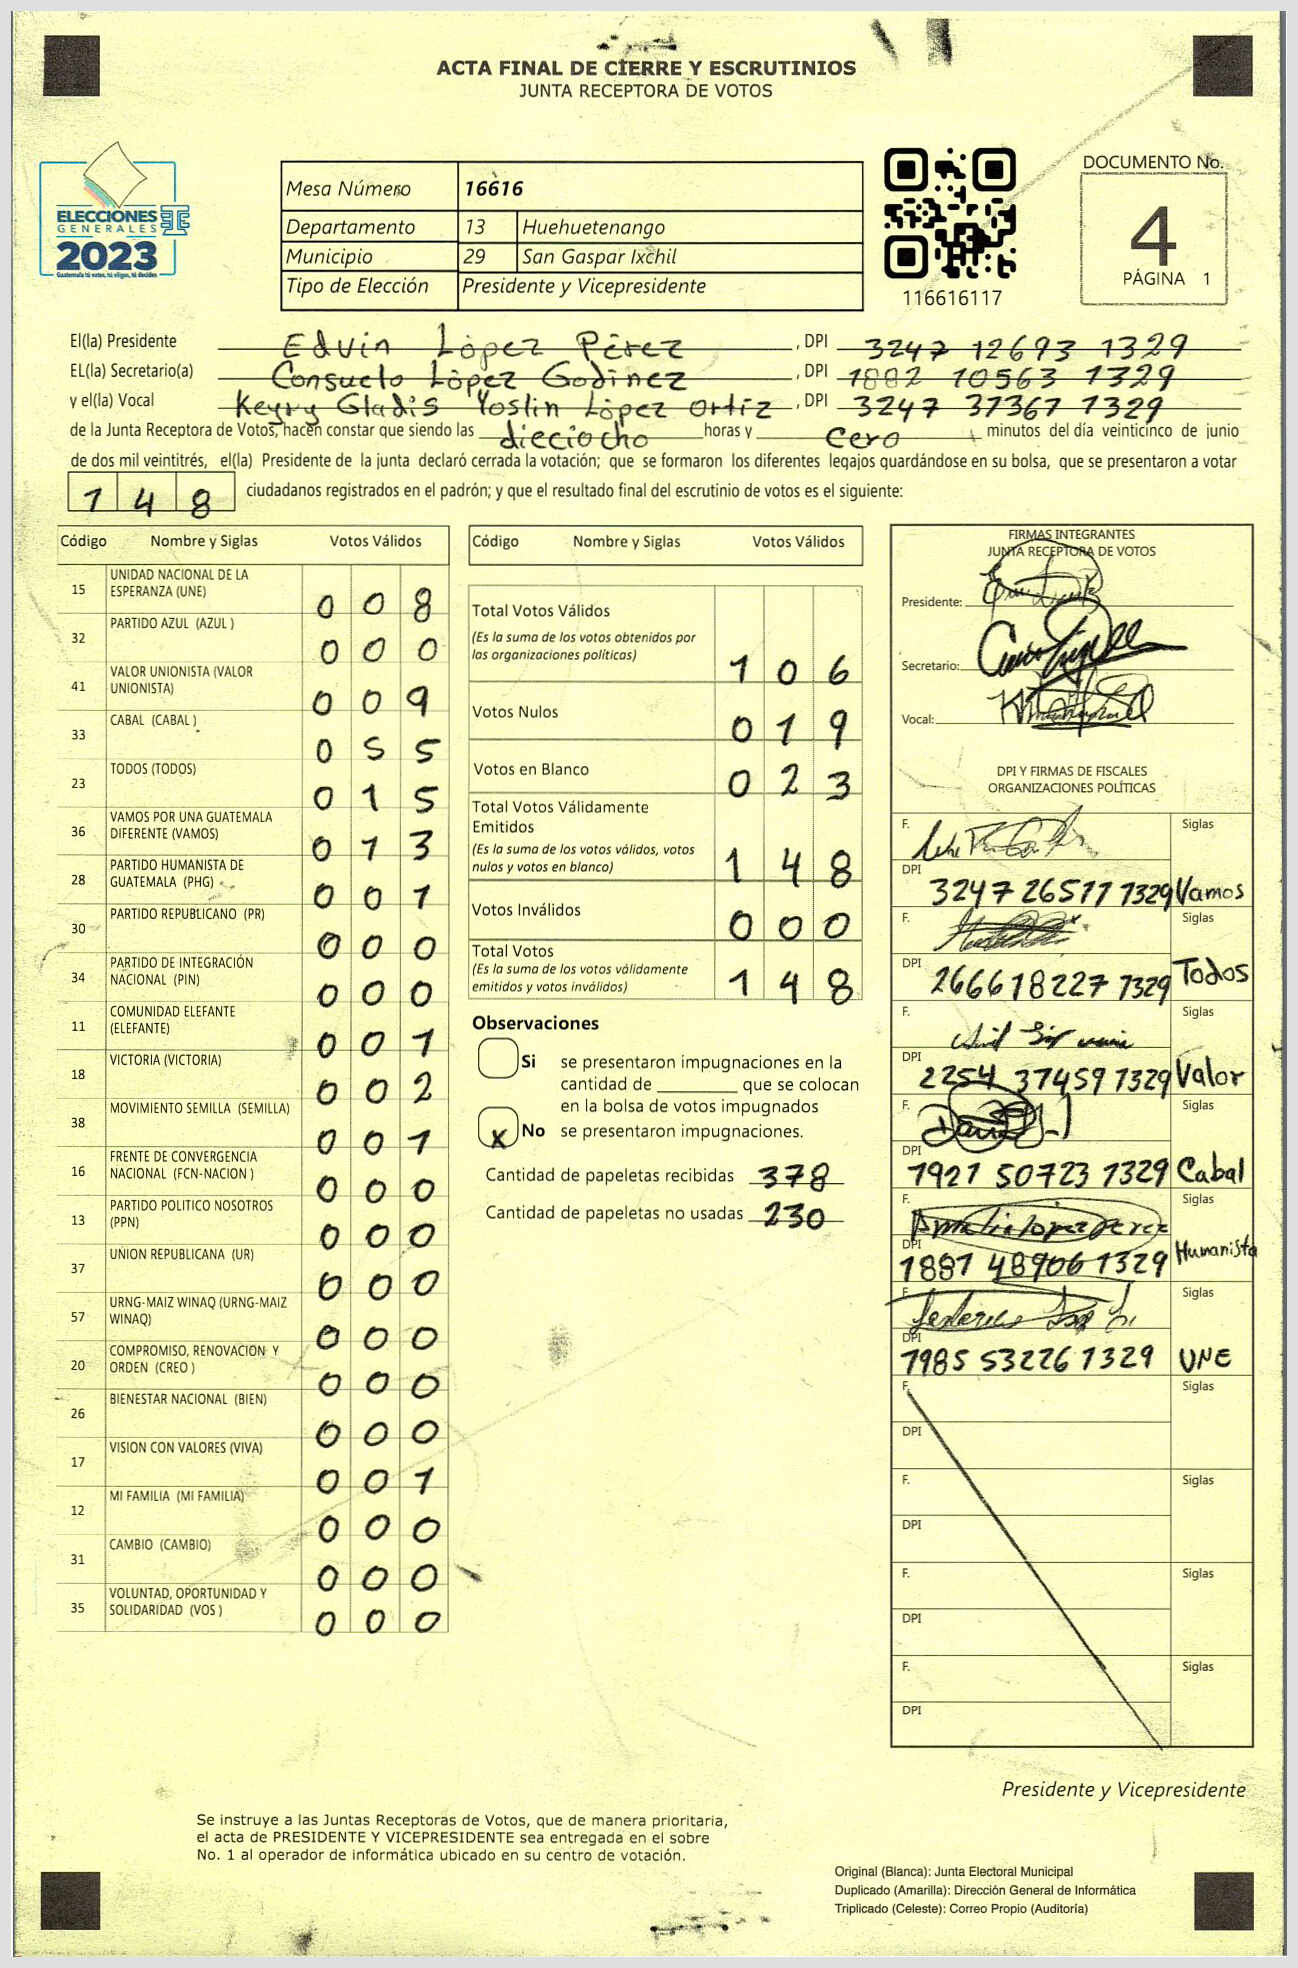 ACTA FINAL DE CIERRE Y ESCRUTINIOS
JUNTA RECEPTORA DE VOTOS
ELECCIONES
GENERALES
2023
Guatemala tú votas, tú eliges, tú decides
Mesa Número 16616
Departamento 13 Huehuetenango
Municipio 29 San Gaspar Ixchil
Tipo de Elección Presidente y Vicepresidente
116616117
DOCUMENTO No.
4
PÁGINA 1
El(la) Presidente Edvin López Pérez, DPI 3247 12693 1329
EL(la) Secretario(a) Consuelo López Godinez, DPI 1882 10563 1329
y el(la) Vocal Keyry Gladis Yoslin López Ortíz, DPI 3247 37367 1329
de la Junta Receptora de Votos, hacen constar que siendo las dieciocho horas y cero minutos del día veinticinco de junio
de dos mil veintitrés, el(la) Presidente de la junta declaró cerrada la votación; que se formaron los diferentes legajos guardándose en su bolsa, que se presentaron a votar
148 ciudadanos registrados en el padrón; y que el resultado final del escrutinio de votos es el siguiente:
Código Nombre y Siglas Votos Válidos
15 UNIDAD NACIONAL DE LA ESPERANZA (UNE) 008
32 PARTIDO AZUL (AZUL ) 000
41 VALOR UNIONISTA (VALOR UNIONISTA) 009
33 CABAL (CABAL ) 055
23 TODOS (TODOS) 015
36 VAMOS POR UNA GUATEMALA DIFERENTE (VAMOS) 013
28 PARTIDO HUMANISTA DE GUATEMALA (PHG) 001
30 PARTIDO REPUBLICANO (PR) 000
34 PARTIDO DE INTEGRACIÓN NACIONAL (PIN) 000
11 COMUNIDAD ELEFANTE (ELEFANTE) 001
18 VICTORIA (VICTORIA) 002
38 MOVIMIENTO SEMILLA (SEMILLA) 001
16 FRENTE DE CONVERGENCIA NACIONAL (FCN-NACION ) 000
13 PARTIDO POLITICO NOSOTROS (PPN) 000
37 UNION REPUBLICANA (UR) 000
57 URNG-MAIZ WINAQ (URNG-MAIZ WINAQ) 000
20 COMPROMISO, RENOVACION Y ORDEN (CREO ) 000
26 BIENESTAR NACIONAL (BIEN) 000
17 VISION CON VALORES (VIVA) 001
12 MI FAMILIA (MI FAMILIA) 000
31 CAMBIO (CAMBIO) 000
35 VOLUNTAD, OPORTUNIDAD Y SOLIDARIDAD (VOS ) 000
Código Nombre y Siglas Votos Válidos
Total Votos Válidos 106
(Es la suma de los votos obtenidos por
las organizaciones políticas)
Votos Nulos 019
Votos en Blanco 023
Total Votos Válidamente
Emitidos 148
(Es la suma de los votos válidos, votos
nulos y votos en blanco)
Votos Inválidos 000
Total Votos 148
(Es la suma de los votos válidamente
emitidos y votos inválidos)
Observaciones
Si se presentaron impugnaciones en la
cantidad de que se colocan
en la bolsa de votos impugnados
x No se presentaron impugnaciones.
Cantidad de papeletas recibidas 378
Cantidad de papeletas no usadas 230
FIRMAS INTEGRANTES
JUNTA RECEPTORA DE VOTOS
Presidente:
Secretario:
Vocal:
DPI Y FIRMAS DE FISCALES
ORGANIZACIONES POLÍTICAS
F. Siglas
DPI 3247 26511 1329 Vamos
F. Siglas
DPI 2666 18227 1329 Todos
F. Siglas
DPI 2254 37459 1329 Valor
F. Siglas
DPI 1921 50723 1329 Cabal
F. Siglas
DPI 1881 48906 1329 Humanista
F. Siglas
DPI 1985 53226 1329 UNE
F. Siglas
DPI
F. Siglas
DPI
F. Siglas
DPI
F. Siglas
DPI
Presidente y Vicepresidente
Se instruye a las Juntas Receptoras de Votos, que de manera prioritaria,
el acta de PRESIDENTE Y VICEPRESIDENTE sea entregada en el sobre
No. 1 al operador de informática ubicado en su centro de votación.
Original (Blanca): Junta Electoral Municipal
Duplicado (Amarilla): Dirección General de Informática
Triplicado (Celeste): Correo Propio (Auditoría)